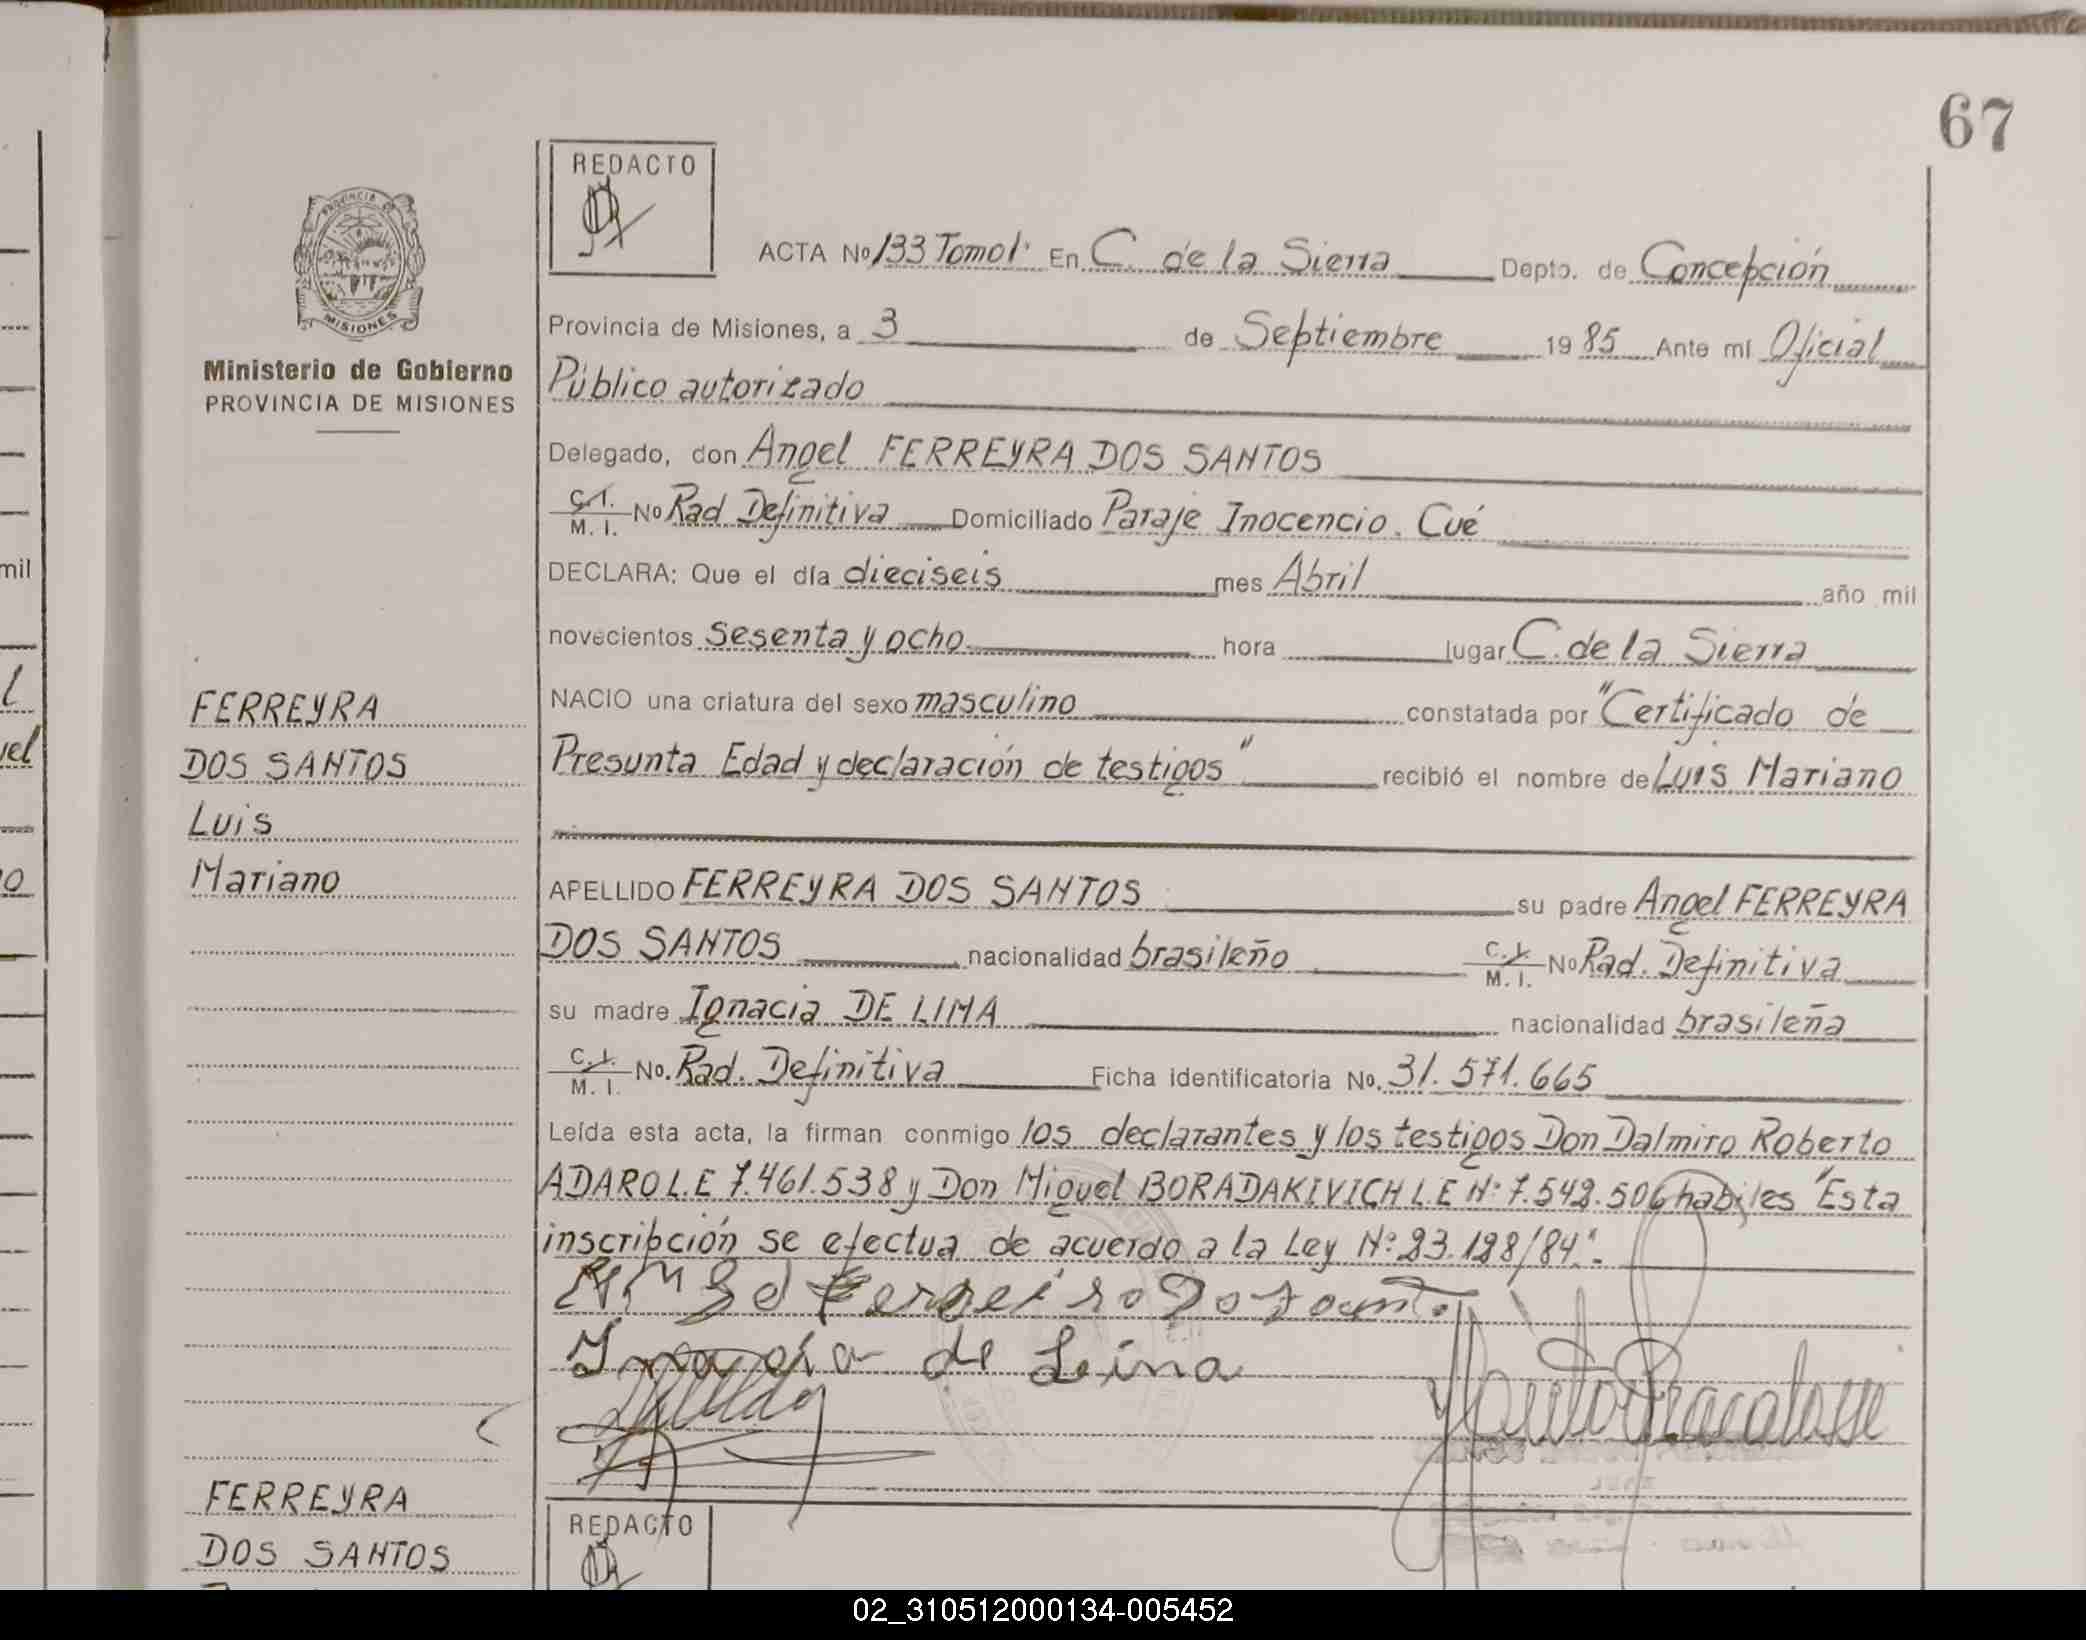 67
REDACTO
ACTA No 133 Tomo I° En C. de la Sierra Depto. de Concepción
Provincia de Misiones, a 3 de Septiembre 1985 Ante mí Oficial
Público autorizado
Delegado, don Angel FERREYRA DOS SANTOS
C.I. M.I. No Rad Definitiva Domiciliado Paraje Inocencio Cué
DECLARA: Que el día dieciseis mes Abril año mil
novecientos sesenta y ocho hora lugar C. de la Sierra
NACIO una criatura del sexo masculino constatada por "Certificado de
Presunta Edad y declaración de testigos" recibió el nombre de Luis Mariano
APELLIDO FERREYRA DOS SANTOS su padre Angel FERREYRA
DOS SANTOS nacionalidad brasileño C.I. M.I. No Rad. Definitiva
su madre Ignacia DE LIMA nacionalidad brasileña
C.I. M.I. No. Rad. Definitiva Ficha identificatoria No. 31.571.665
Leída esta acta, la firman conmigo los declarantes y los testigos Don Dalmiro Roberto
ADARO L.E 7.461.538 y Don Miguel BORADAKIVICH L.E N° 7.542.506 habiles "Esta
inscripción se efectua de acuerdo a la Ley N° 23.128/84".
de Lima
PROVINCIA DE
MISIONES
Ministerio de Gobierno
PROVINCIA DE MISIONES
FERREYRA
DOS SANTOS
Luis
Mariano
FERREYRA
DOS SANTOS
REDACTO
mil
l
uel
o
02_310512000134-005452